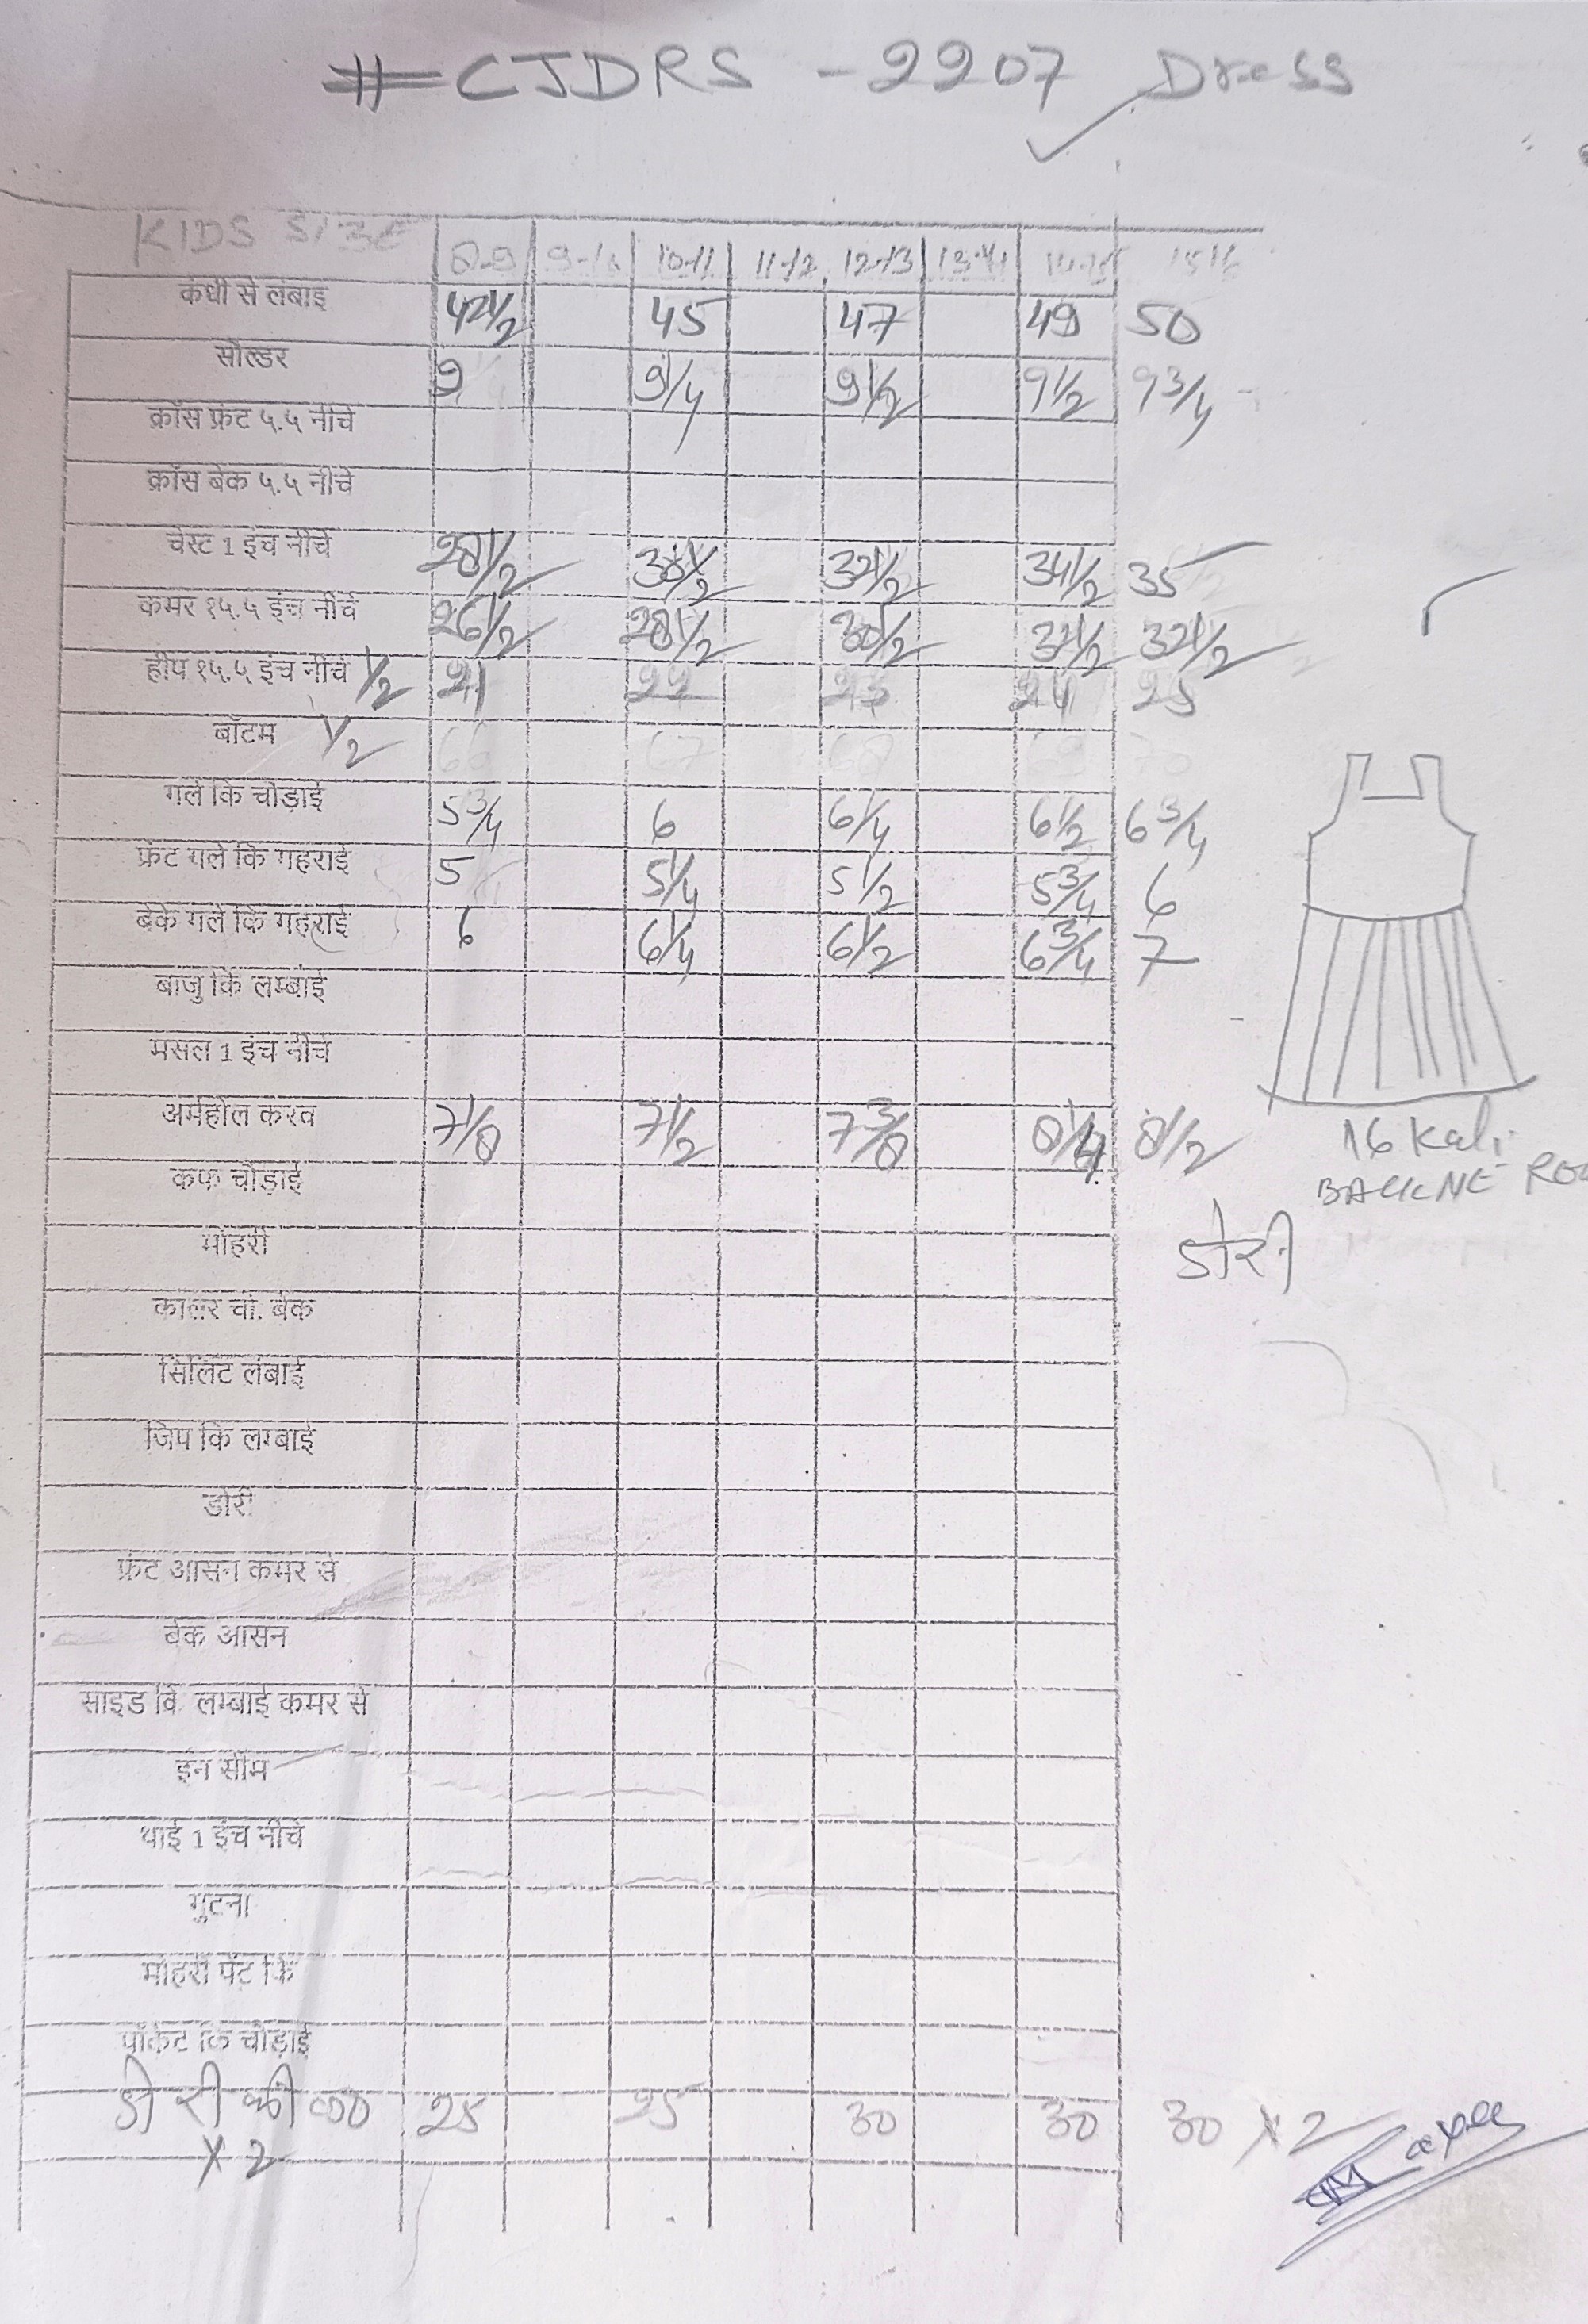 #CJDRS - 2207 Dress
KIDS SIZE 8-9 9-10 10-11 11-12 12-13 13-14 14-15 15-16
कंधी से लंबाइ 42 1/2 45 47 49 50
सोल्डर 9 9 1/4 9 1/2 9 1/2 9 3/4
क्रॉस फ्रंट ५.५ नीचे
क्रॉस बेक ५.५ नीचे
चेस्ट 1 इंच नीचे 28 1/2 30 1/2 32 1/2 34 1/2 35
कमर १५.५ इंच नीचे 26 1/2 28 1/2 30 1/2 32 1/2 32 1/2
हीप १५.५ इंच नीचे 1/2 21 22 23 24 25
बॉटम 1/2 66 67 68 69 70
गले कि चोड़ाई 5 3/4 6 6 1/4 6 1/2 6 3/4
फ्रंट गले कि गहराई 5 5 1/4 5 1/2 5 3/4 6
बेक गले कि गहराई 6 6 1/4 6 1/2 6 3/4 7
बाजु कि लम्बाई
मसल 1 इंच नीचे
अर्महोल करव 7 1/8 7 1/2 7 3/8 8 1/4 8 1/2
16 Kali
BACK NE
कफ चौड़ाई
डोरी
मोहरी
कालर चो. बेक
सिलिट लंबाई
जिप कि लम्बाई
डोरी
फ्रंट आसन कमर से
बेक आसन
साइड कि लम्बाई कमर से
इन सीम
थाई 1 इंच नीचे
गुटना
मोहरी पेंट कि
पॉकेट कि चौड़ाई
डोरी की ल0 25 25 30 30 30 x 2
x 2